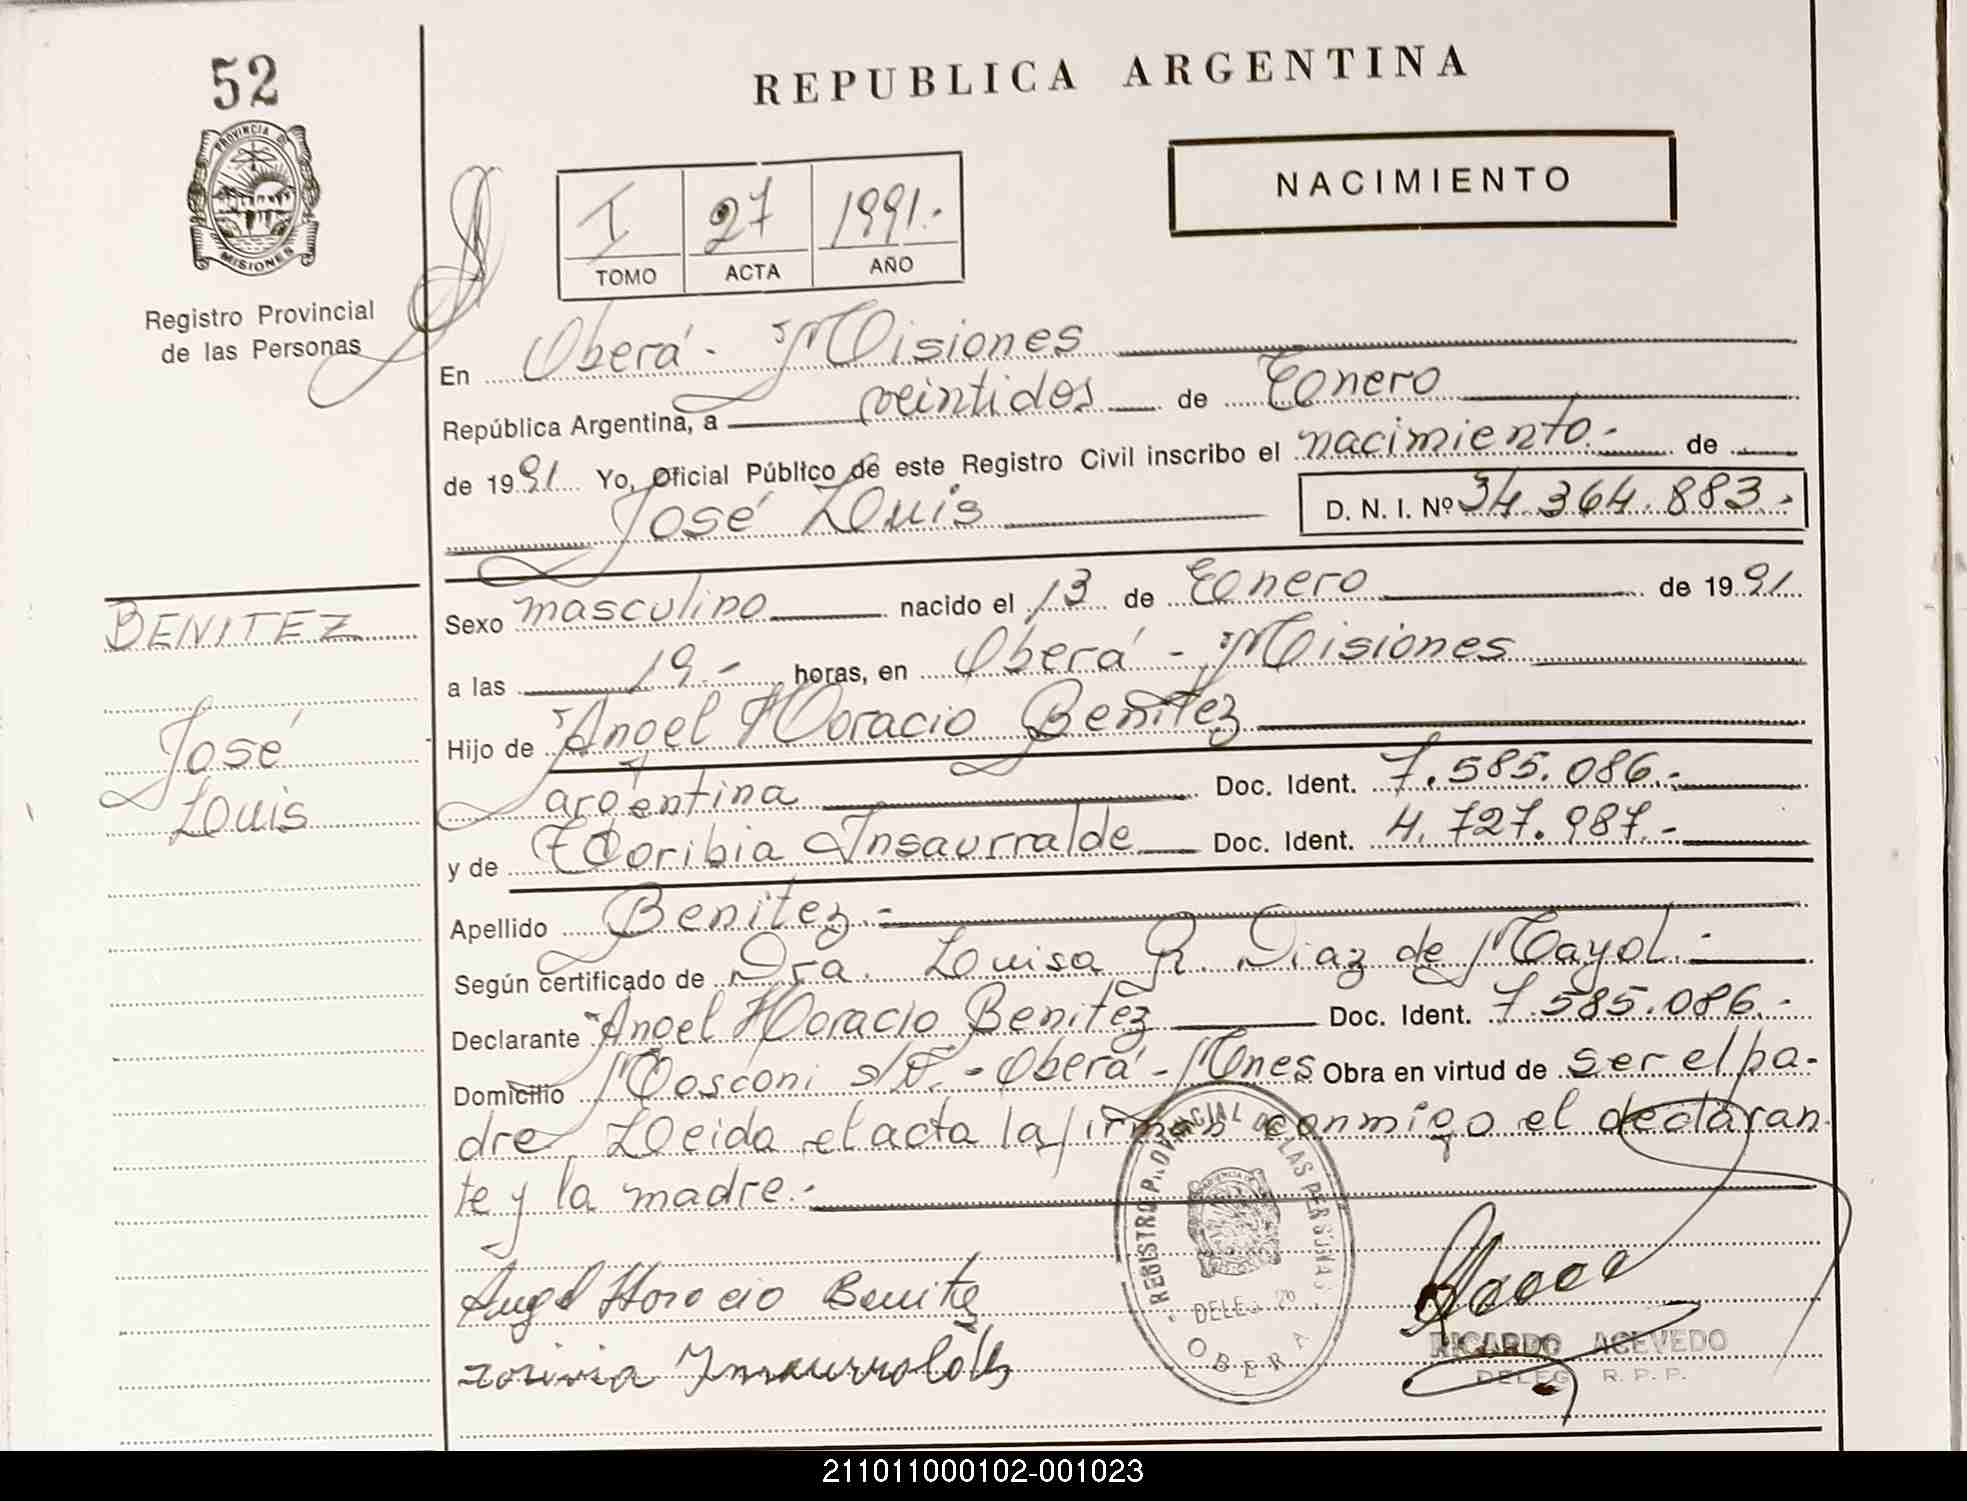 52
REPUBLICA ARGENTINA
PROVINCIA D
MISIONES
NACIMIENTO
I 27 1991.-
TOMO ACTA AÑO
Registro Provincial
de las Personas
En Oberá - Misiones
República Argentina, a veintidos de Enero
de 1991 Yo, Oficial Público de este Registro Civil inscribo el nacimiento.- de
José Luis D. N. I. Nº 34.364.883.-
Sexo masculino nacido el 13 de Enero de 1991
a las 19.- horas, en Oberá - Misiones
Hijo de Angel Horacio Benitez
argentina Doc. Ident. 7.585.086.-
y de Toribia Insaurralde Doc. Ident. 4.727.987.-
Apellido Benitez.-
Según certificado de Dra. Luisa R. Diaz de Mayol.-
Declarante Angel Horacio Benitez Doc. Ident. 7.585.086.-
Domicilio Mosconi s/Nº.- Oberá - Mnes Obra en virtud de ser el pa-
dre Leida el acta la firman conmigo el declaran-
te y la madre.-
BENITEZ
José
Luis
Angel Horacio Benitez
Insaurralde
REGISTRO PROVINCIAL DE LAS PERSONAS
DELEG
OBERA
RICARDO ACEVEDO
DELEG R. P. P.
211011000102-001023